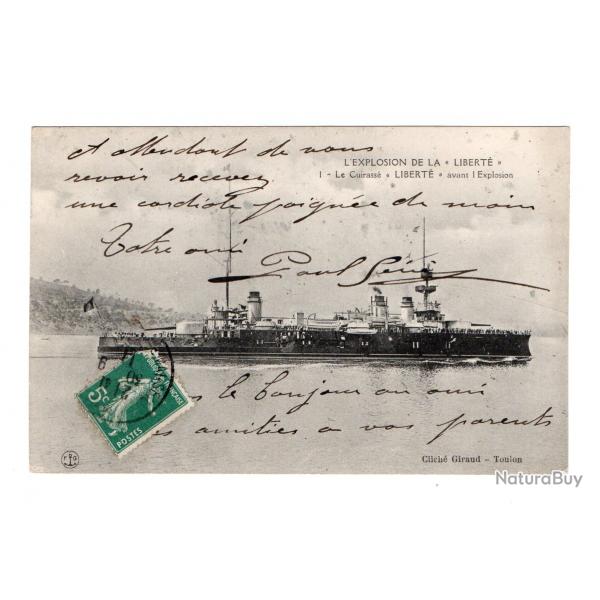 A attendant de vous
revoir recevez
une cordiale poignée de main
Votre ami
Paul
L'EXPLOSION DE LA « LIBERTÉ »
1 - Le Cuirassé « LIBERTÉ » avant l'Explosion
5c
POSTES
le bonjour au ami
amitiés a vos parents
Cliché Giraud - Toulon
NaturaBuy